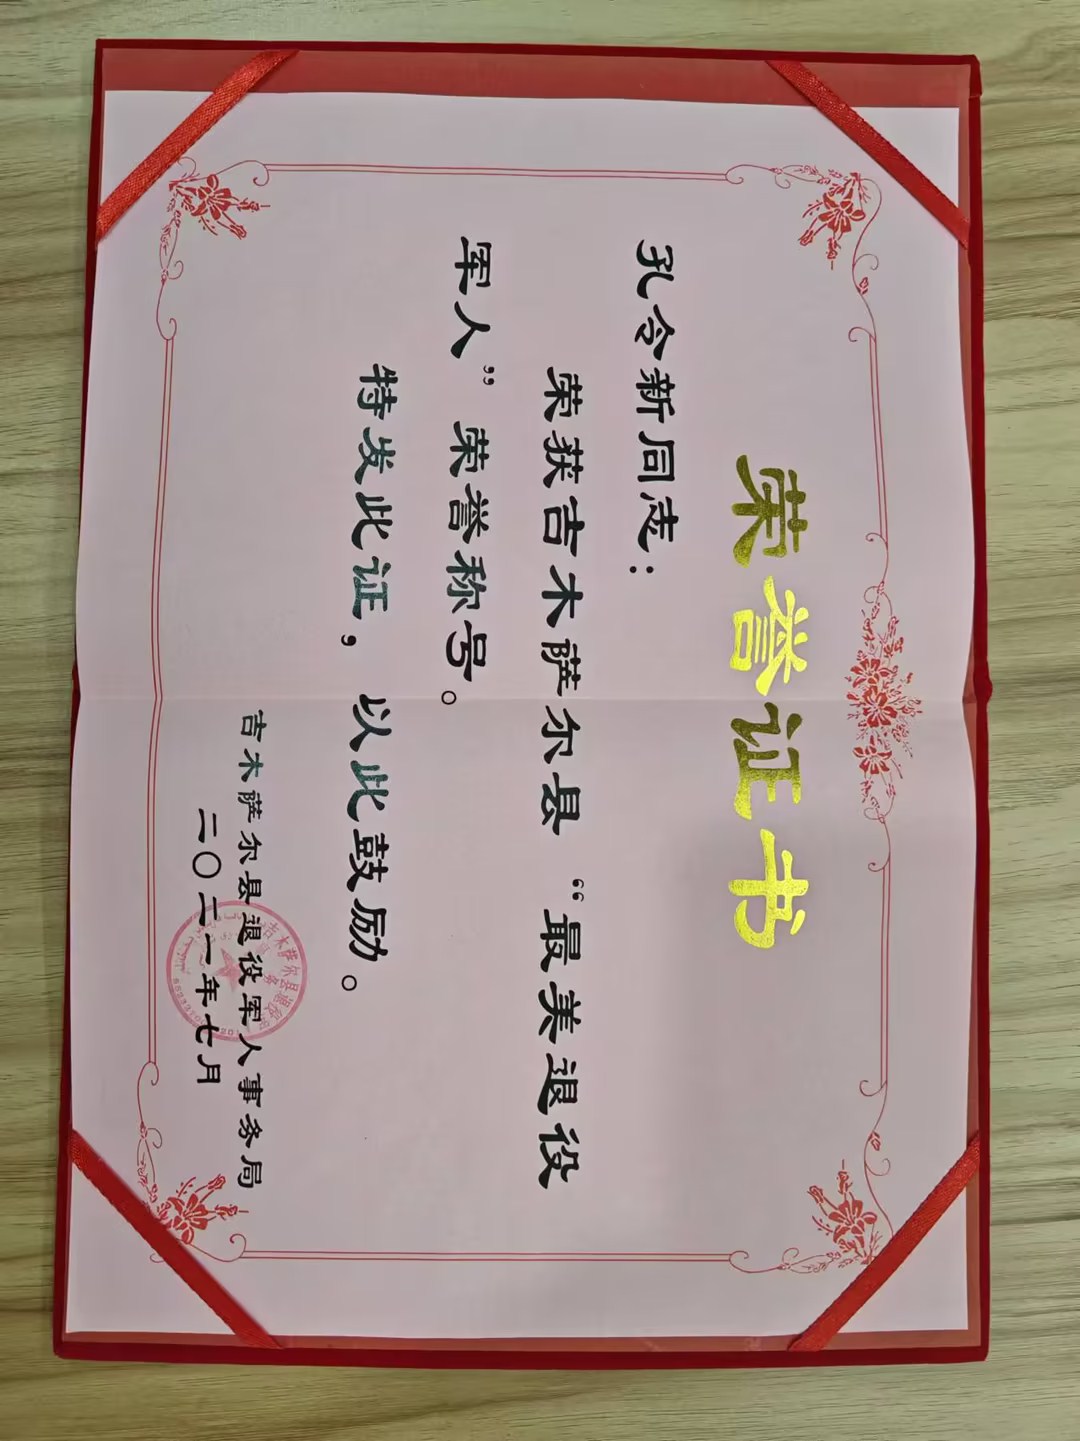 荣誉证书
孔令新同志：
荣获吉木萨尔县“最美退役
军人”荣誉称号。
特发此证，以此鼓励。
吉木萨尔县退役军人事务局
二〇二一年七月